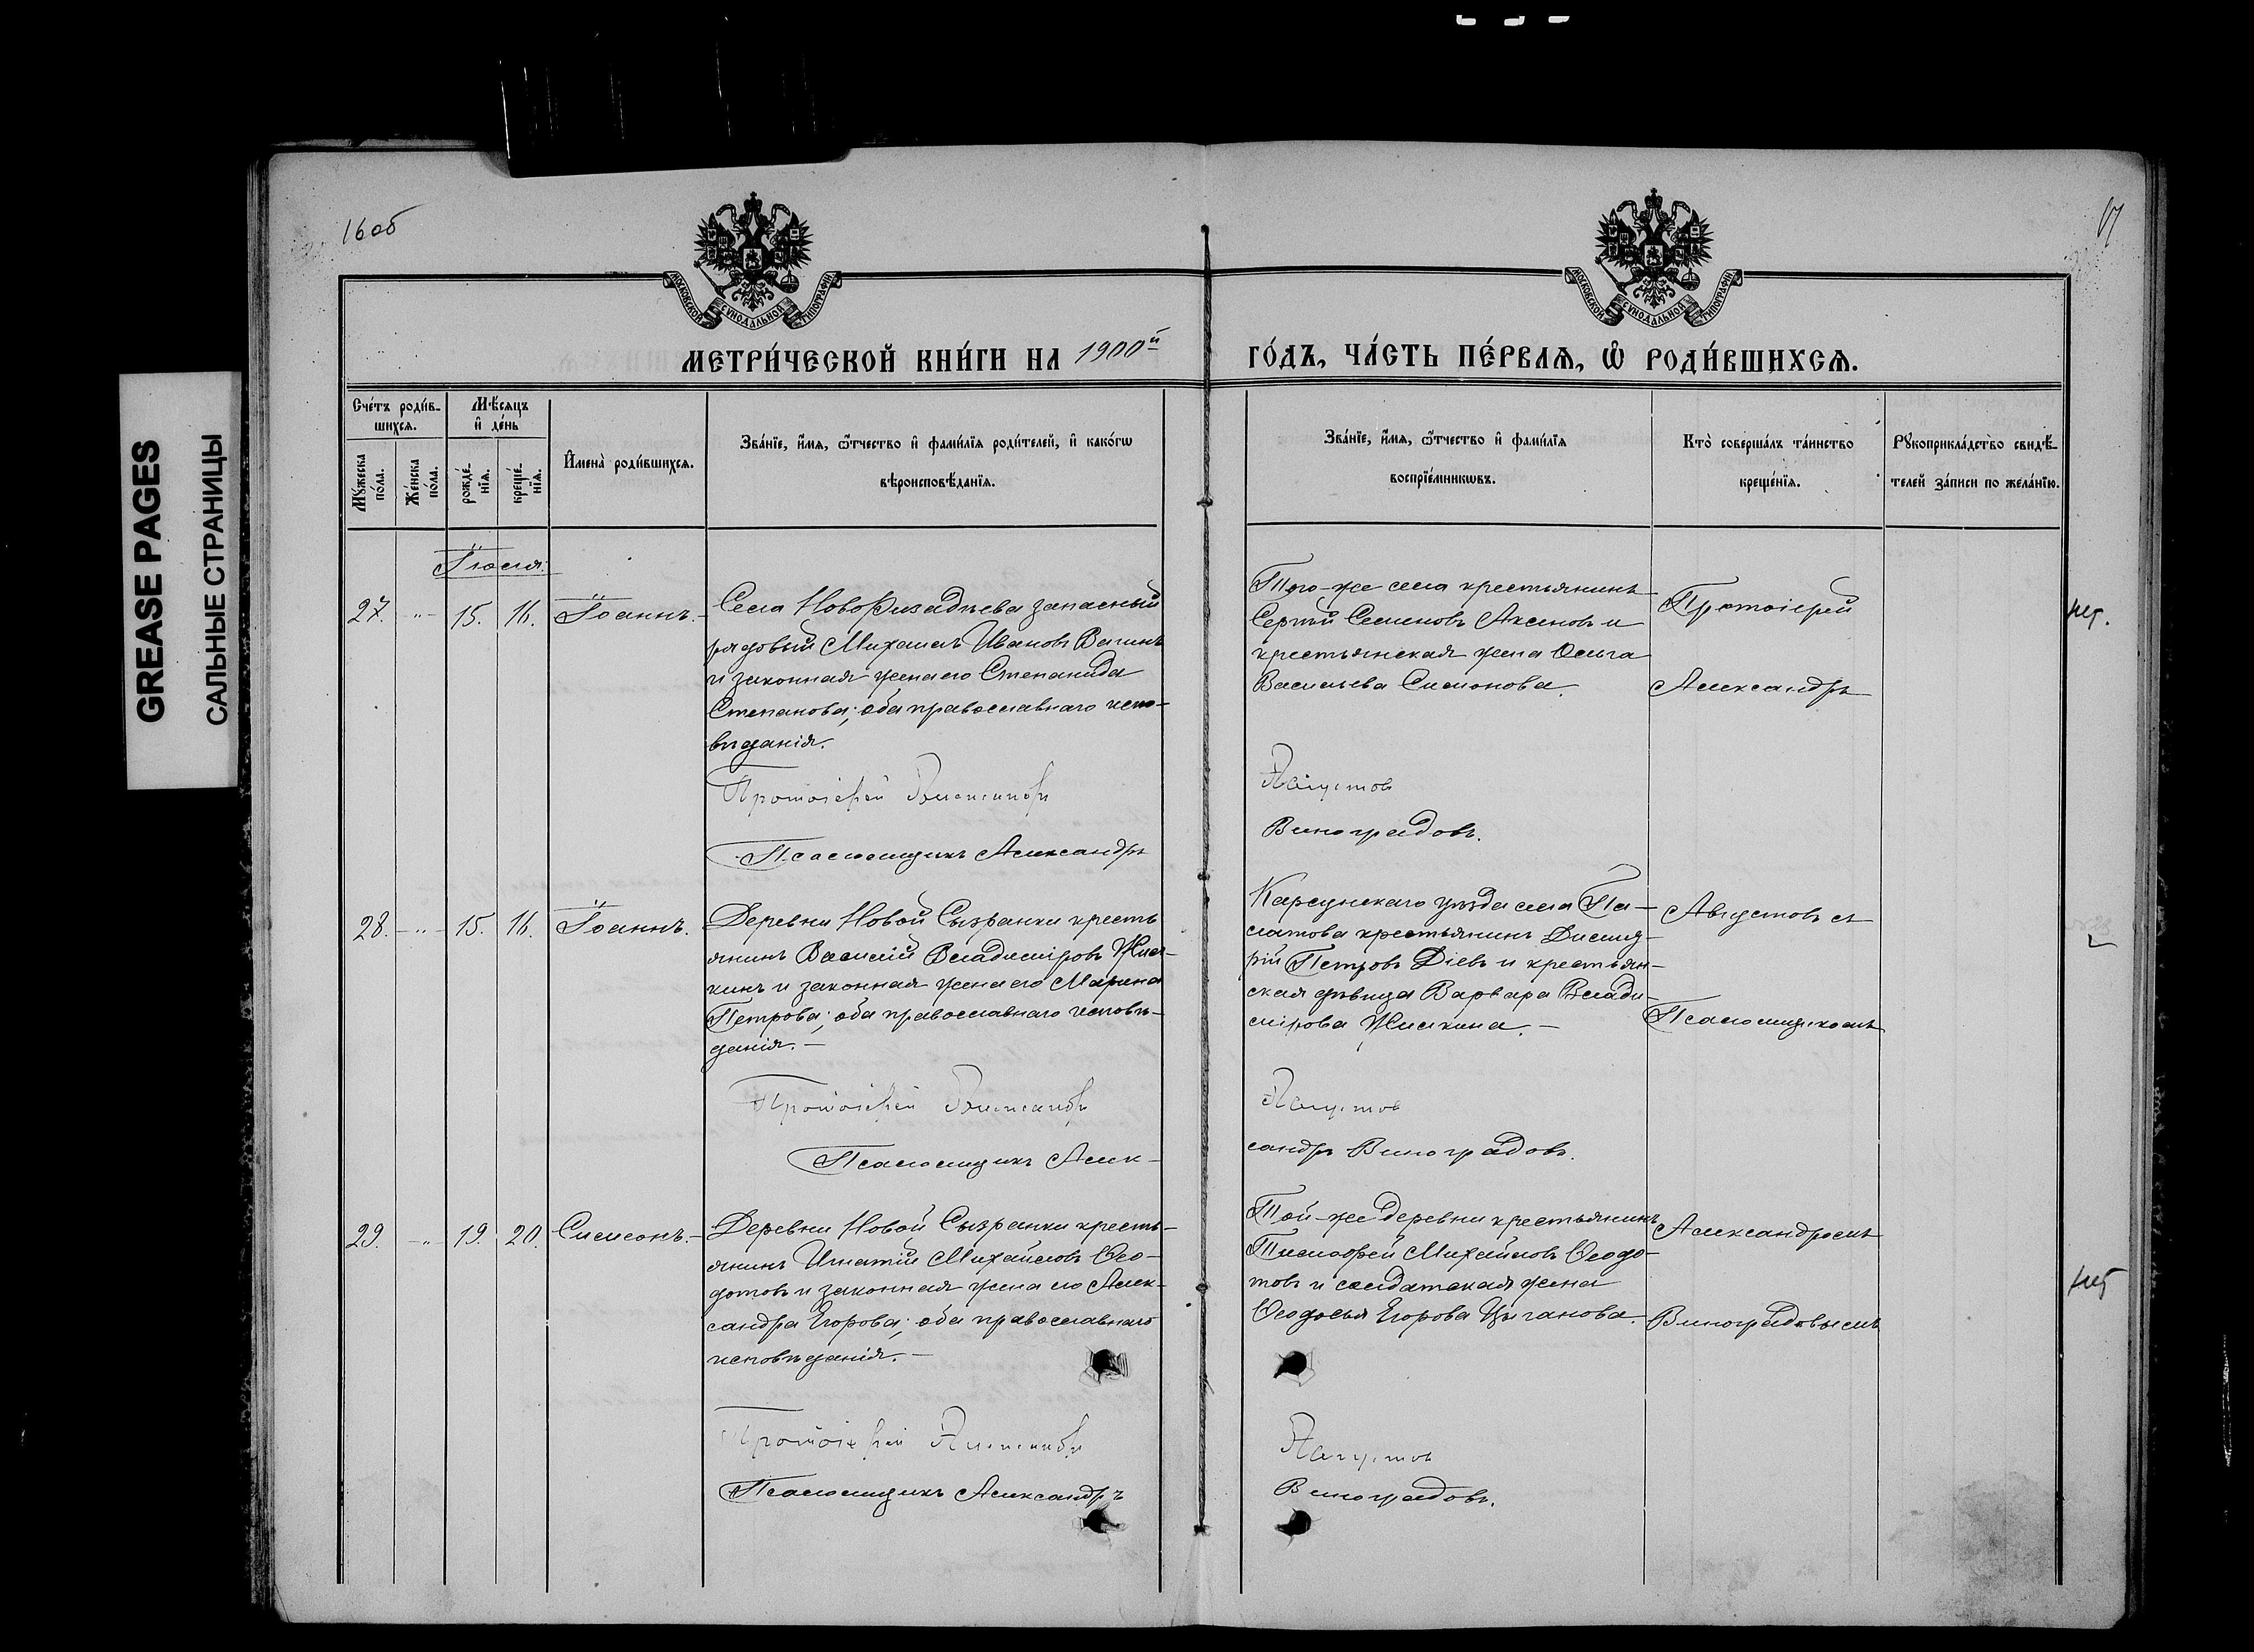 GREASE PAGES
САЛЬНЫЕ СТРАНИЦЫ
16об
17
МОСКОВСКОЙ СУНОДАЛЬНОЙ ТИПОГРАФІИ
МОСКОВСКОЙ СУНОДАЛЬНОЙ ТИПОГРАФІИ
МЕТРИ́ЧЕСКОЙ КНИ́ГИ НА 1900й
ГО́ДЪ, ЧА́СТЬ ПЕ́РВАЯ, Ѡ РОДИ́ВШИХСЯ.
Сче́тъ роди́в-
шихся.
Мѣ́сяцъ
и де́нь
Му́жеска
по́ла.
Же́нска
по́ла.
рожде́-
нїя.
креще́-
нїя.
Имена̀ роди́вшихся.
Зва́нїе, и́мя, ѻ́тчество и фами́лїя роди́телей, и како́гѡ
вѣроисповѣ́данїя.
Зва́нїе, и́мя, ѻ́тчество и фами́лїя
воспрїе́мникѡвъ.
Кто̀ соверша́лъ та́инство
креще́нїя.
Рꙋкоприкла́дство свидѣ́-
телей за́писи по жела́нїю.
Іюля.
27. -"- 15. 16. Іоаннъ.-
Села Новофизадѣева запасный
рядовый Михаилъ Ивановъ Вагинъ
и законная жена его Степанида
Степанова; оба православнаго испо-
вѣданія.
Протоіерей Александръ
Псаломщикъ Александръ
Того-же села крестьянинъ
Сергѣй Семеновъ Аксеновъ и
крестьянская жена Ольга
Васильева Симонова.
Августов
Виноградовъ.
Протоіерей
Александръ
28. -"- 15. 16. Іоаннъ.
Деревни Новой Сызранки кресть
янинъ Василій Владиміровъ
кинъ и законная жена его Марина
Петрова; оба православнаго исповѣ-
данія.-
Протоіерей Александръ
Псаломщикъ Алек-
Карсунскаго уѣзда села Па-
латова крестьянинъ Димит-
рій Петровъ Діевъ и крестьян-
ская дѣвица Варвара Влади-
мірова.-
Августов
сандръ Виноградовъ.
Августовъ съ
Псаломщикомъ
29. -"- 19. 20. Симеонъ.-
Деревни Новой Сызранки кресть-
янинъ Игнатій Михайловъ Ѳео-
дотовъ и законная жена его Алек-
сандра Егорова; оба православнаго
исповѣданія.-
Протоіерей Александръ
Псаломщикъ Александръ
Той-же деревни крестьянинъ
Тимофей Михайловъ Ѳеодо-
товъ и солдатская жена
Ѳеодосья Егорова Цыганова.
Августов
Виноградовъ.
Александромъ
Виноградовымъ